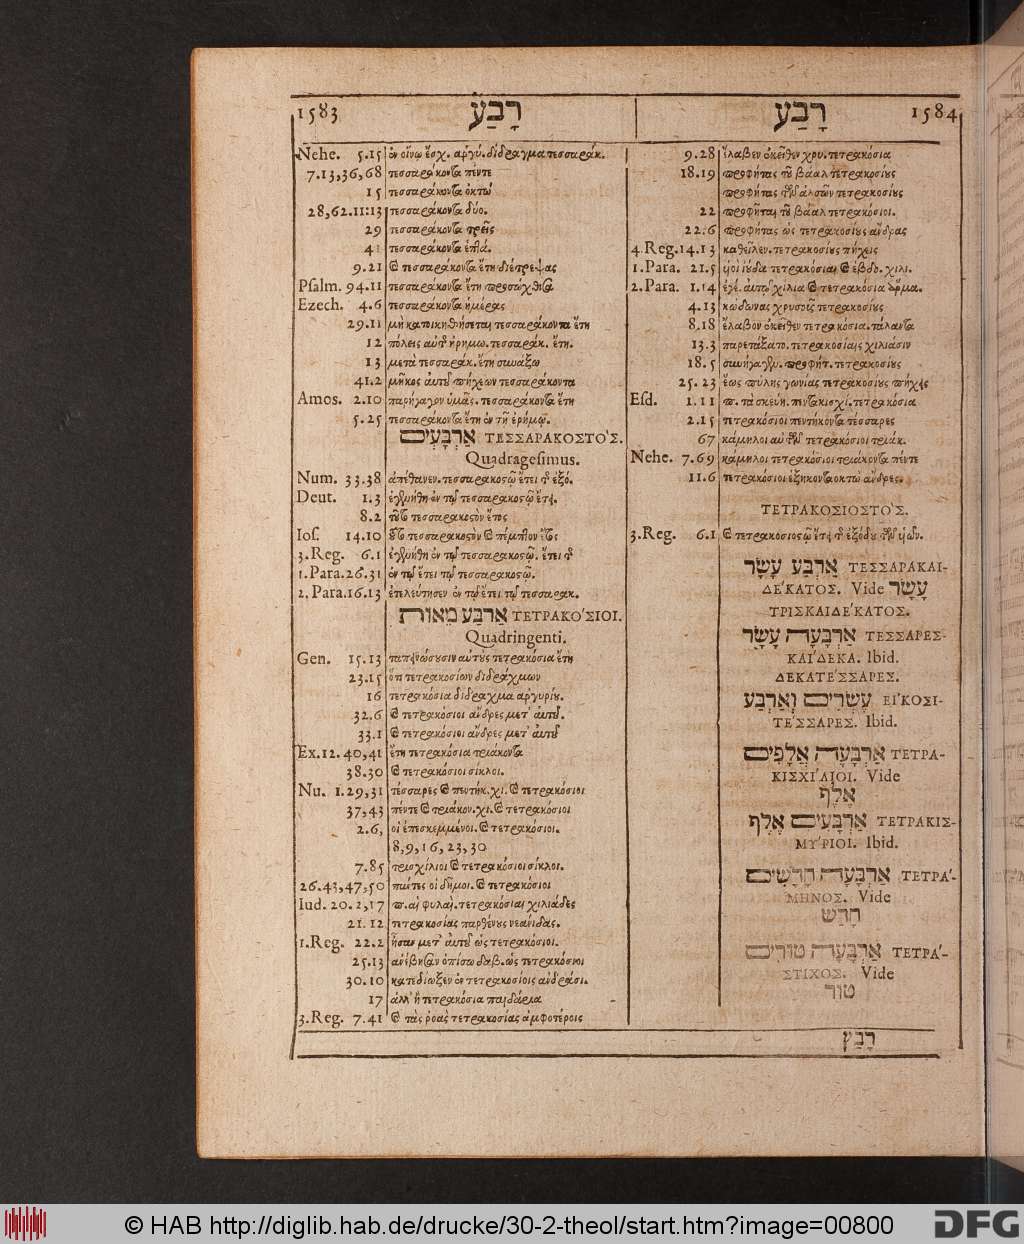 1583 רָבַע
Nehe. 5.15 ἐν οἴνῳ ἔσχ. ἀργύ. δίδραγμα τεσσαράκ.
7.13,36,68 τεσσαράκοντα πέντε
15 τεσσαράκοντα ὀκτώ
28,62.11:13 τεσσαράκοντα δύο.
29 τεσσαράκοντα τρεῖς
41 τεσσαράκοντα ἑπτά.
9.21 καὶ τεσσαράκοντα ἔτη διέτρεψας
Psalm. 94.11 τεσσαράκοντα ἔτη προσώχθισα
Ezech. 4.6 τεσσαράκοντα ἡμέρας
29.11 μὴ κατοικηθήσεται τεσσαράκοντα ἔτη
12 πόλεις αὐτῆς ἐρήμω. τεσσαράκ. ἔτη.
13 μετὰ τεσσαράκ. ἔτη συνάξω
41.2 μῆκος αὐτοῦ πήχεων τεσσαράκοντα
Amos. 2.10 παρήγαγον ὑμᾶς. τεσσαράκοντα ἔτη
5.25 τεσσαράκοντα ἔτη ἐν τῇ ἐρήμῳ.
אַרְבָּעִים ΤΕΣΣΑΡΑΚΟΣΤΟ'Σ.
Quadragesimus.
Num. 33.38 ἀπέθανεν. τεσσαρακοστῷ ἔτει τῆς ἐξό.
Deut. 1.3 ἐγενήθη ἐν τῷ τεσσαρακοστῷ ἔτει.
8.2 τοῦτο τεσσαρακοστὸν ἔτος
Ios. 14.10 τοῦτο τεσσαρακοστὸν καὶ πέμπτον ἔτος
3.Reg. 6.1 ἐγενήθη ἐν τῷ τεσσαρακοστῷ. ἔτει τῆς
1.Para.26.31 ἐν τῷ ἔτει τῷ τεσσαρακοστῷ.
2.Para.16.13 ἐτελεύτησεν ἐν τῷ ἔτει τῷ τεσσαρακ.
אַרְבַּע מֵאוֹת ΤΕΤΡΑΚΟ'ΣΙΟΙ.
Quadringenti.
Gen. 15.13 ταπεινώσουσιν αὐτοὺς τετρακόσια ἔτη
23.15 τετρακοσίων διδράχμων
16 τετρακόσια δίδραχμα ἀργυρίου.
32.6 καὶ τετρακόσιοι ἄνδρες μετ' αὐτοῦ.
33.1 καὶ τετρακόσιοι ἄνδρες μετ' αὐτοῦ
Ex.12.40,41 ἔτη τετρακόσια τριάκοντα
38.30 καὶ τετρακόσιοι σίκλοι.
Nu. 1.29,31 τέσσαρες καὶ πεντήκ. χι. καὶ τετρακόσιοι
37,43 πέντε καὶ τριάκον. χι. καὶ τετρακόσιοι
2.6, οἱ ἐπεσκεμμένοι. καὶ τετρακόσιοι.
8,9,16,23,30
7.85 τρισχίλιοι καὶ τετρακόσιοι σίκλοι.
26.43,47,50 πάντες οἱ δῆμοι. καὶ τετρακόσιοι
Iud. 20.2,17 π. αἱ φυλαὶ. τετρακόσιαι χιλιάδες
21.12 τετρακοσίας παρθένους νεάνιδας.
1.Reg. 22.2 ἦσαν μετ' αὐτοῦ ὡς τετρακόσιοι.
25.13 ἀνέβησαν ὀπίσω δαβ. ὡς τετρακόσιοι
30.10 κατεδίωξεν ἐν τετρακοσίοις ἀνδράσι.
17 ἀλλ' ἢ τετρακόσια παιδάρια
3.Reg. 7.41 καὶ τὰς ῥοὰς τετρακοσίας ἀμφοτέροις
רָבַע 1584
9.28 ἔλαβεν ἐκεῖθεν χρυ. τετρακόσια
18.19 προφήτας τοῦ βάαλ τετρακοσίους
προφήτας τῶν ἀλσῶν τετρακοσίους
22 προφῆται τοῦ βάαλ τετρακόσιοι.
22.6 προφήτας ὡς τετρακοσίους ἄνδρας
4.Reg.14.13 καθεῖλεν. τετρακοσίους πήχεις
1.Para. 21.5 υἱοὶ ἰούδα τετρακόσιαι καὶ ἑβδο. χιλι.
2.Para. 1.14 ἐγέ. αὐτῷ χίλια καὶ τετρακόσια ἅρμα.
4.13 κώδωνας χρυσοῦς τετρακοσίους
8.18 ἔλαβον ἐκεῖθεν τετρακόσια. τάλαντα
13.3 παρετάξατο. τετρακοσίαις χιλιάσιν
18.5 συνήγαγεν. προφήτ. τετρακοσίους
25.23 ἕως πύλης γωνίας τετρακοσίους πήχεις
Esd. 1.11 π. τὰ σκεύη. πεντακισχί. τετρακόσια
2.15 τετρακόσιοι πεντήκοντα τέσσαρες
67 κάμηλοι αὐτῶν τετρακόσιοι τριάκ.
Nehe. 7.69 κάμηλοι τετρακόσιοι τριάκοντα πέντε
11.6 τετρακόσιοι ἑξήκοντα ὀκτὼ ἄνδρες.
ΤΕΤΡΑΚΟΣΙΟΣΤΟ'Σ.
3.Reg. 6.1 καὶ τετρακοσιοστῷ ἔτει τῆς ἐξόδου τῶν υἱῶν.
אַרְבַּע עָשָׂר ΤΕΣΣΑΡΑΚΑΙ-
ΔΕ'ΚΑΤΟΣ. Vide עָשָׂר
ΤΡΙΣΚΑΙΔΕ'ΚΑΤΟΣ.
אַרְבָּעָה עָשָׂר ΤΕΣΣΑΡΕΣ-
ΚΑΙ'ΔΕΚΑ. Ibid.
ΔΕΚΑΤΕ'ΣΣΑΡΕΣ.
עֶשְׂרִים וְאַרְבַּע ΕΙ'ΚΟΣΙ-
ΤΕ'ΣΣΑΡΕΣ. Ibid.
אַרְבָּעָה אֲלָפִים ΤΕΤΡΑ-
ΚΙΣΧΙ'ΛΙΟΙ. Vide
אֶלֶף
אַרְבָּעִים אֶלֶף ΤΕΤΡΑΚΙΣ-
ΜΥ'ΡΙΟΙ. Ibid.
אַרְבָּעָה חֳדָשִׁים ΤΕΤΡΑ'-
ΜΗΝΟΣ. Vide
חָדַשׁ
אַרְבָּעָה טוּרִים ΤΕΤΡΑ'-
ΣΤΙΧΟΣ. Vide
טוּר
רָבַץ
© HAB http://diglib.hab.de/drucke/30-2-theol/start.htm?image=00800
DFG